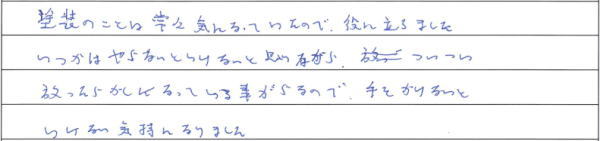 塗装のことは常々気になっていたので、役に立ちました
いつかはやらないといけないと思いながら、ついつい
放ったらかしになっている事があるので、手をかけないと
いけない気持になりました